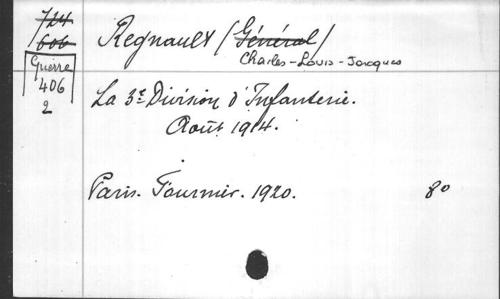 724
606
Guerre
406
2
Regnault (Général)
Charles-Louis-Jacques
La 3e Division d'Infanterie.
Août 1914.
Paris. Fournier. 1920. 8o